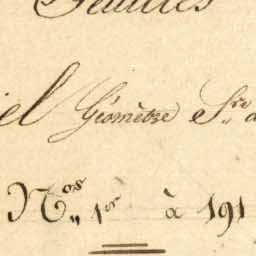 Feuilles
el Géomètre Sre d
Nos 1er à 191